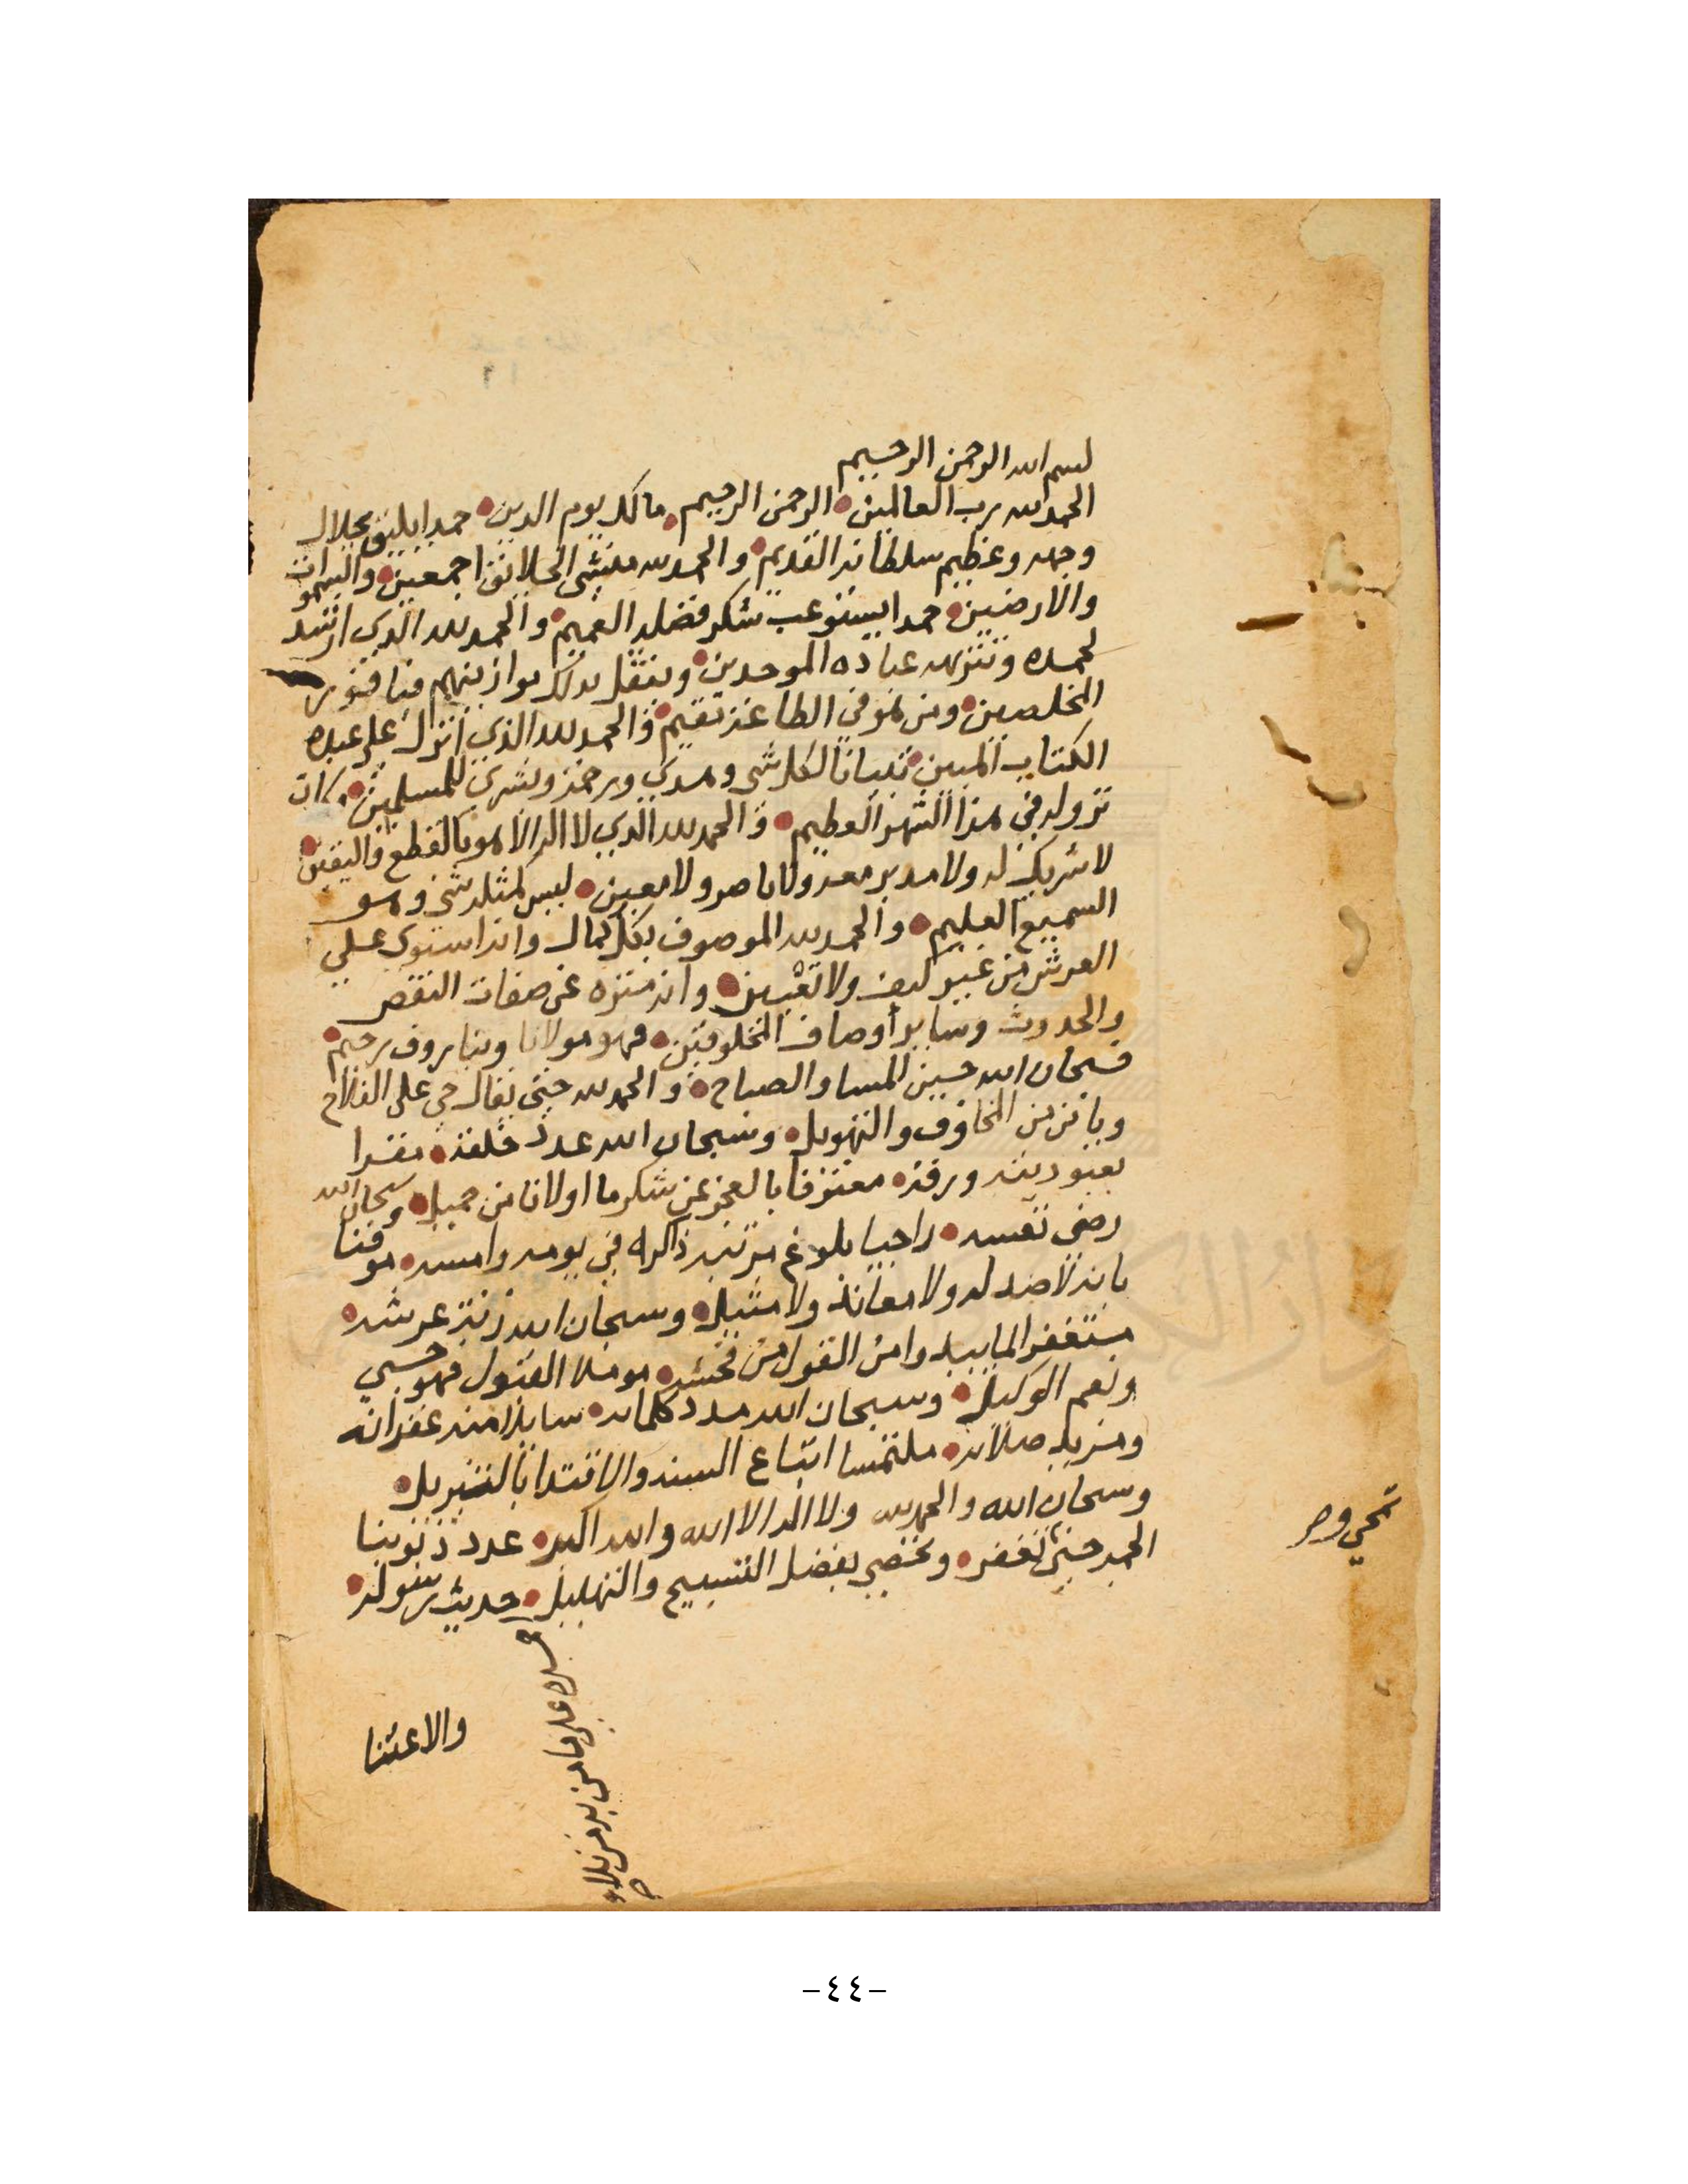 بسم الله الرحمن الرحيم
الحمد لله رب العالمين الرحمن الرحيم مالك يوم الدين حمدا يليق بجلال
وجهه وعظيم سلطانه القديم والحمد لله منشئ الخلائق اجمعين والسموات
والارضين حمدا يستوعب شكر فضله العميم والحمد لله الذي ارشد
لحمده وتنزيهه عباده الموحدين وثقل بذلك موازينهم
المخلصين ومن هو في الطاعة مقيم والحمد لله الذي انزل على عبده
الكتاب المبين تبيانا لكل شي وهدى ورحمة وبشرى للمسلمين وكان
نزوله في هذا الشهر العظيم والحمد لله الذي لا اله الا هو بالقطع واليقين
لا شريك له ولا مدبر معه ولا ناصر ولا معين ليس كمثله شي وهو
السميع العليم والحمد لله الموصوف بكل كمال وانه استوى على
العرش من غير كيف ولا تعيين وانه منزه عن صفات النقص
والحدوث وساير أوصاف المخلوقين فهو مولانا وبنا روف رحيم
فسبحان الله حين المسا والصباح والحمد لله حتى يقال حي على الفلاح
من المخاوف والتهويل وسبحان الله عدد خلقه مقرا
بعبوديته ورقه معترفا بالعجز عن شكر ما اولانا من جميل وسبحان الله
رضى نفسه راجيا بلوغ مرتبة ذاكره في يومه وامسه موقنا
بانه لا ضد له ولا معاند ولا مثيل وسبحان الله زنة عرشه
مستغفرا من القول من فحشه موملا القبول فهو حسبي
ونعم الوكيل وسبحان الله مدد كلماته سايلا منه غفرانه
ومزيد صلاته ملتمسا اتباع السنه والاقتدا بالتنزيل
وسبحان الله والحمد لله ولا اله الا الله والله اكبر عدد ذنوبنا
حتى تغفر بفضل التسبيح والتهليل حديث رسوله
والاعتنا